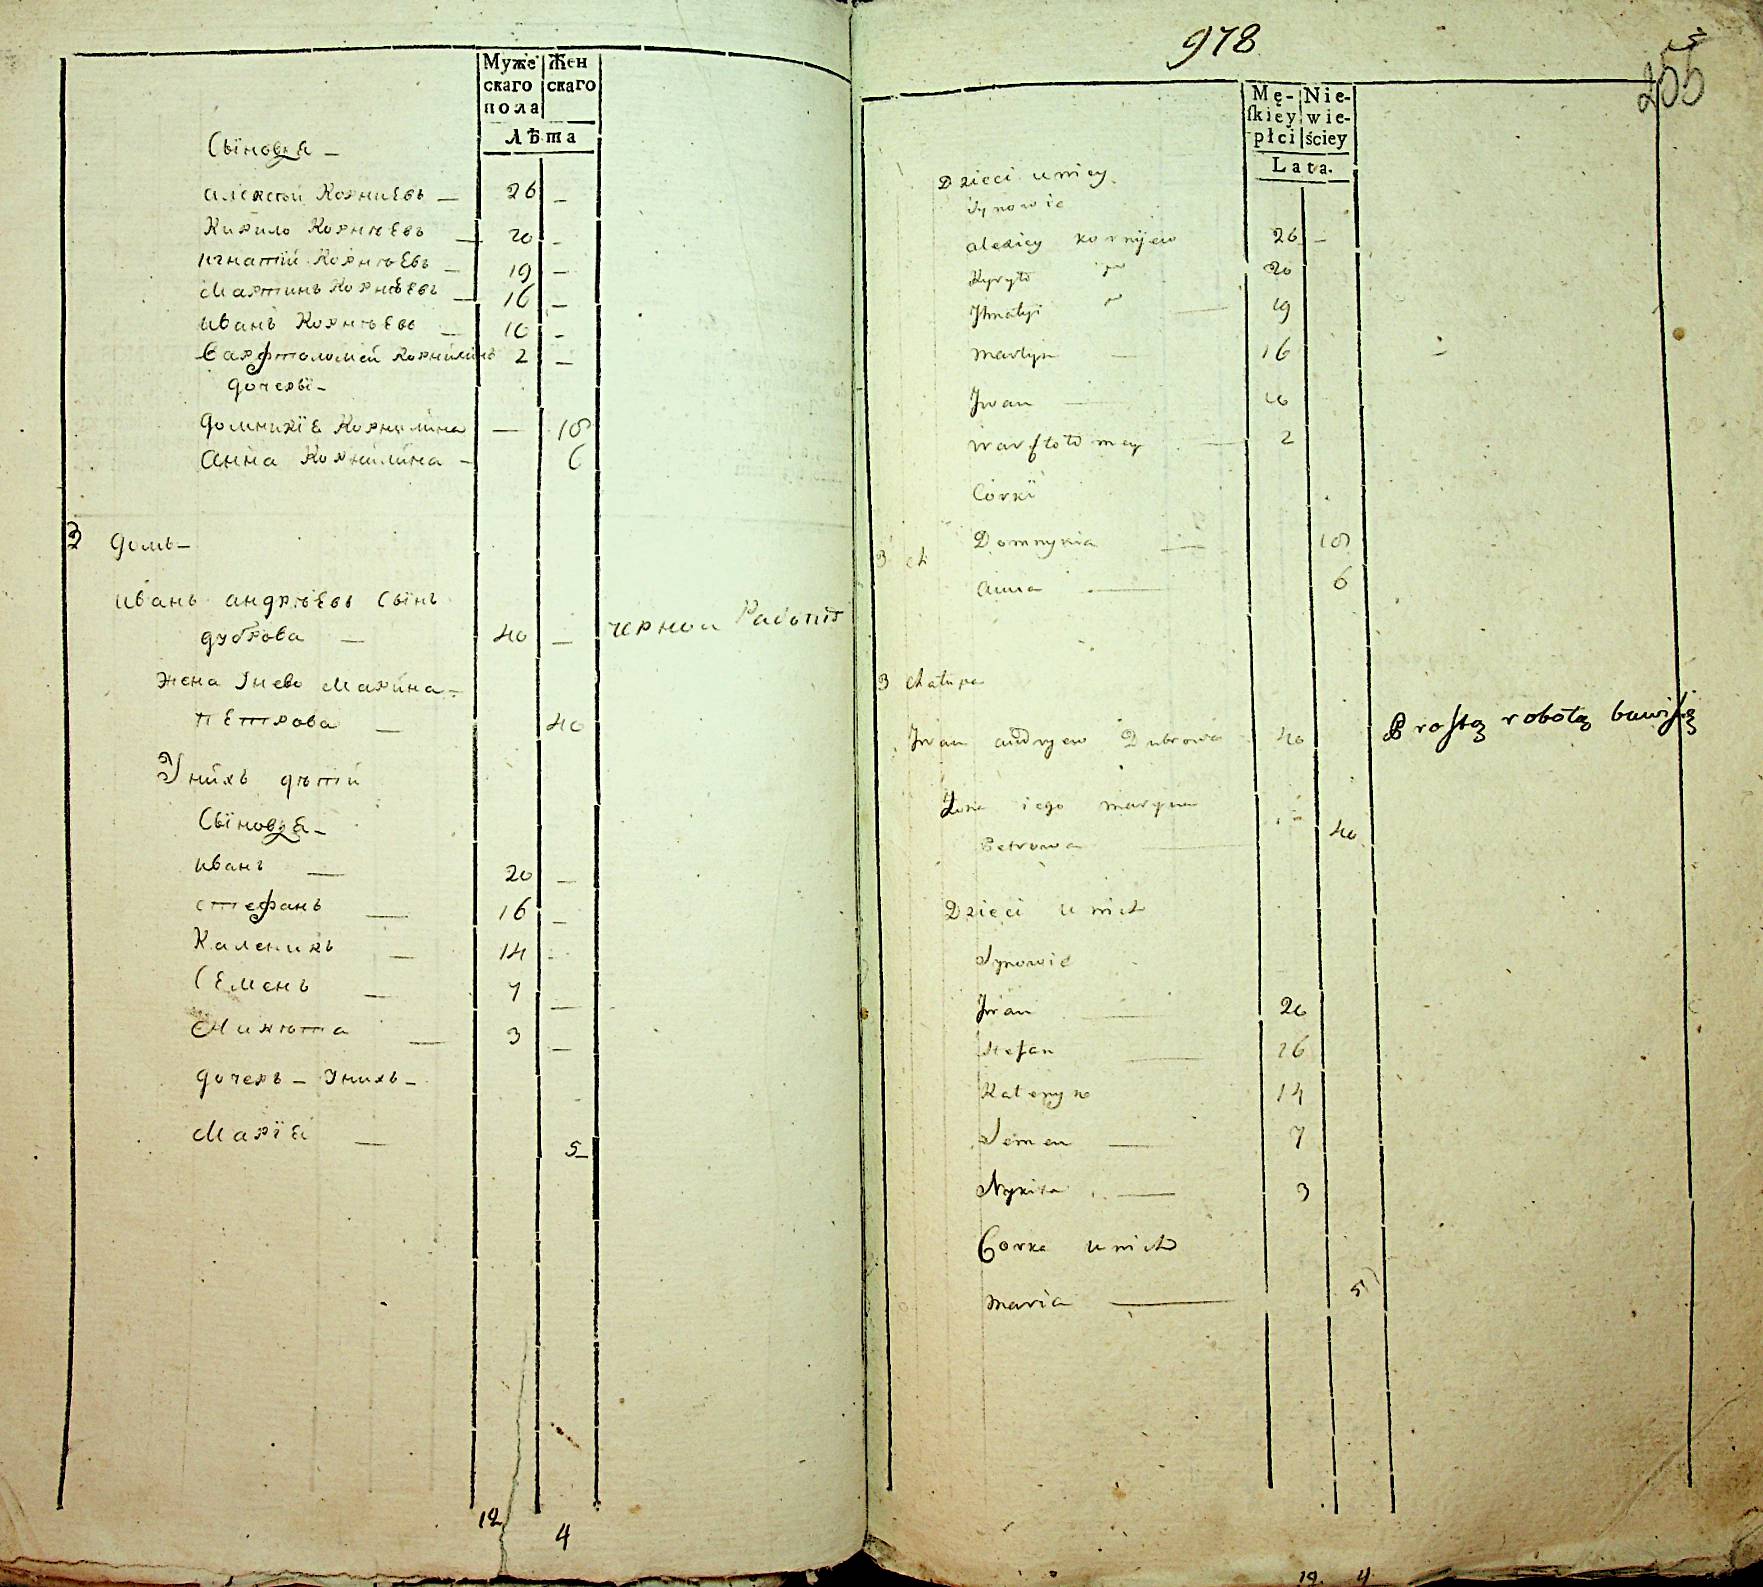 Муже
скаго
пола
Жен
скаго
Лѣта
Сыновя —
Алексѣй Корниевъ — 26 —
Кирило Корнѣевъ — 20 —
Игнатiй Корнѣевъ — 19 —
Мартинъ Корнѣевъ — 16 —
Иванъ Корнѣевъ — 10 —
Варфтоломей Корнилинъ 2 —
дочерӥ —
Домникїя Корнилина — 18
Анна Корнилина — 6
3 Домъ —
Иванъ Андрѣевъ Сынъ
Дуброва — 40 — черной Работы
Жена Iнево Марина —
Петрова — 40
Унихъ дѣтiй
Сыновя —
Иванъ — 20 —
Стефанъ — 16 —
Каленикъ — 14 —
Семенъ — 7 —
Никита — 3 —
дочерь — Унихъ —
Марїя — 5 —
12 4
978
255
Mę-
skiey
płci
Nie-
wie-
ściey
Lata.
Dzieci u niey
Synowie
Alexiey Kornijew 26 —
Kyryło 20
Ihnatyi 19
Martyn — 16
Iwan — 10
Warftołomey — 2
Córkï
3 ch Domnykia — 18
Anna — 6
3 Chałupa
Iwan Andryew Dubrowa 40 Prostą robotą bawi się
Żona iego Maryna
Petrowa — 40
Dzieci u nich
Synowie
Iwan — 20
Stefan — 16
Kalenyk 14
Semen — 7
Nykita — 3
Corka u nich
Maria — 5
12. 4